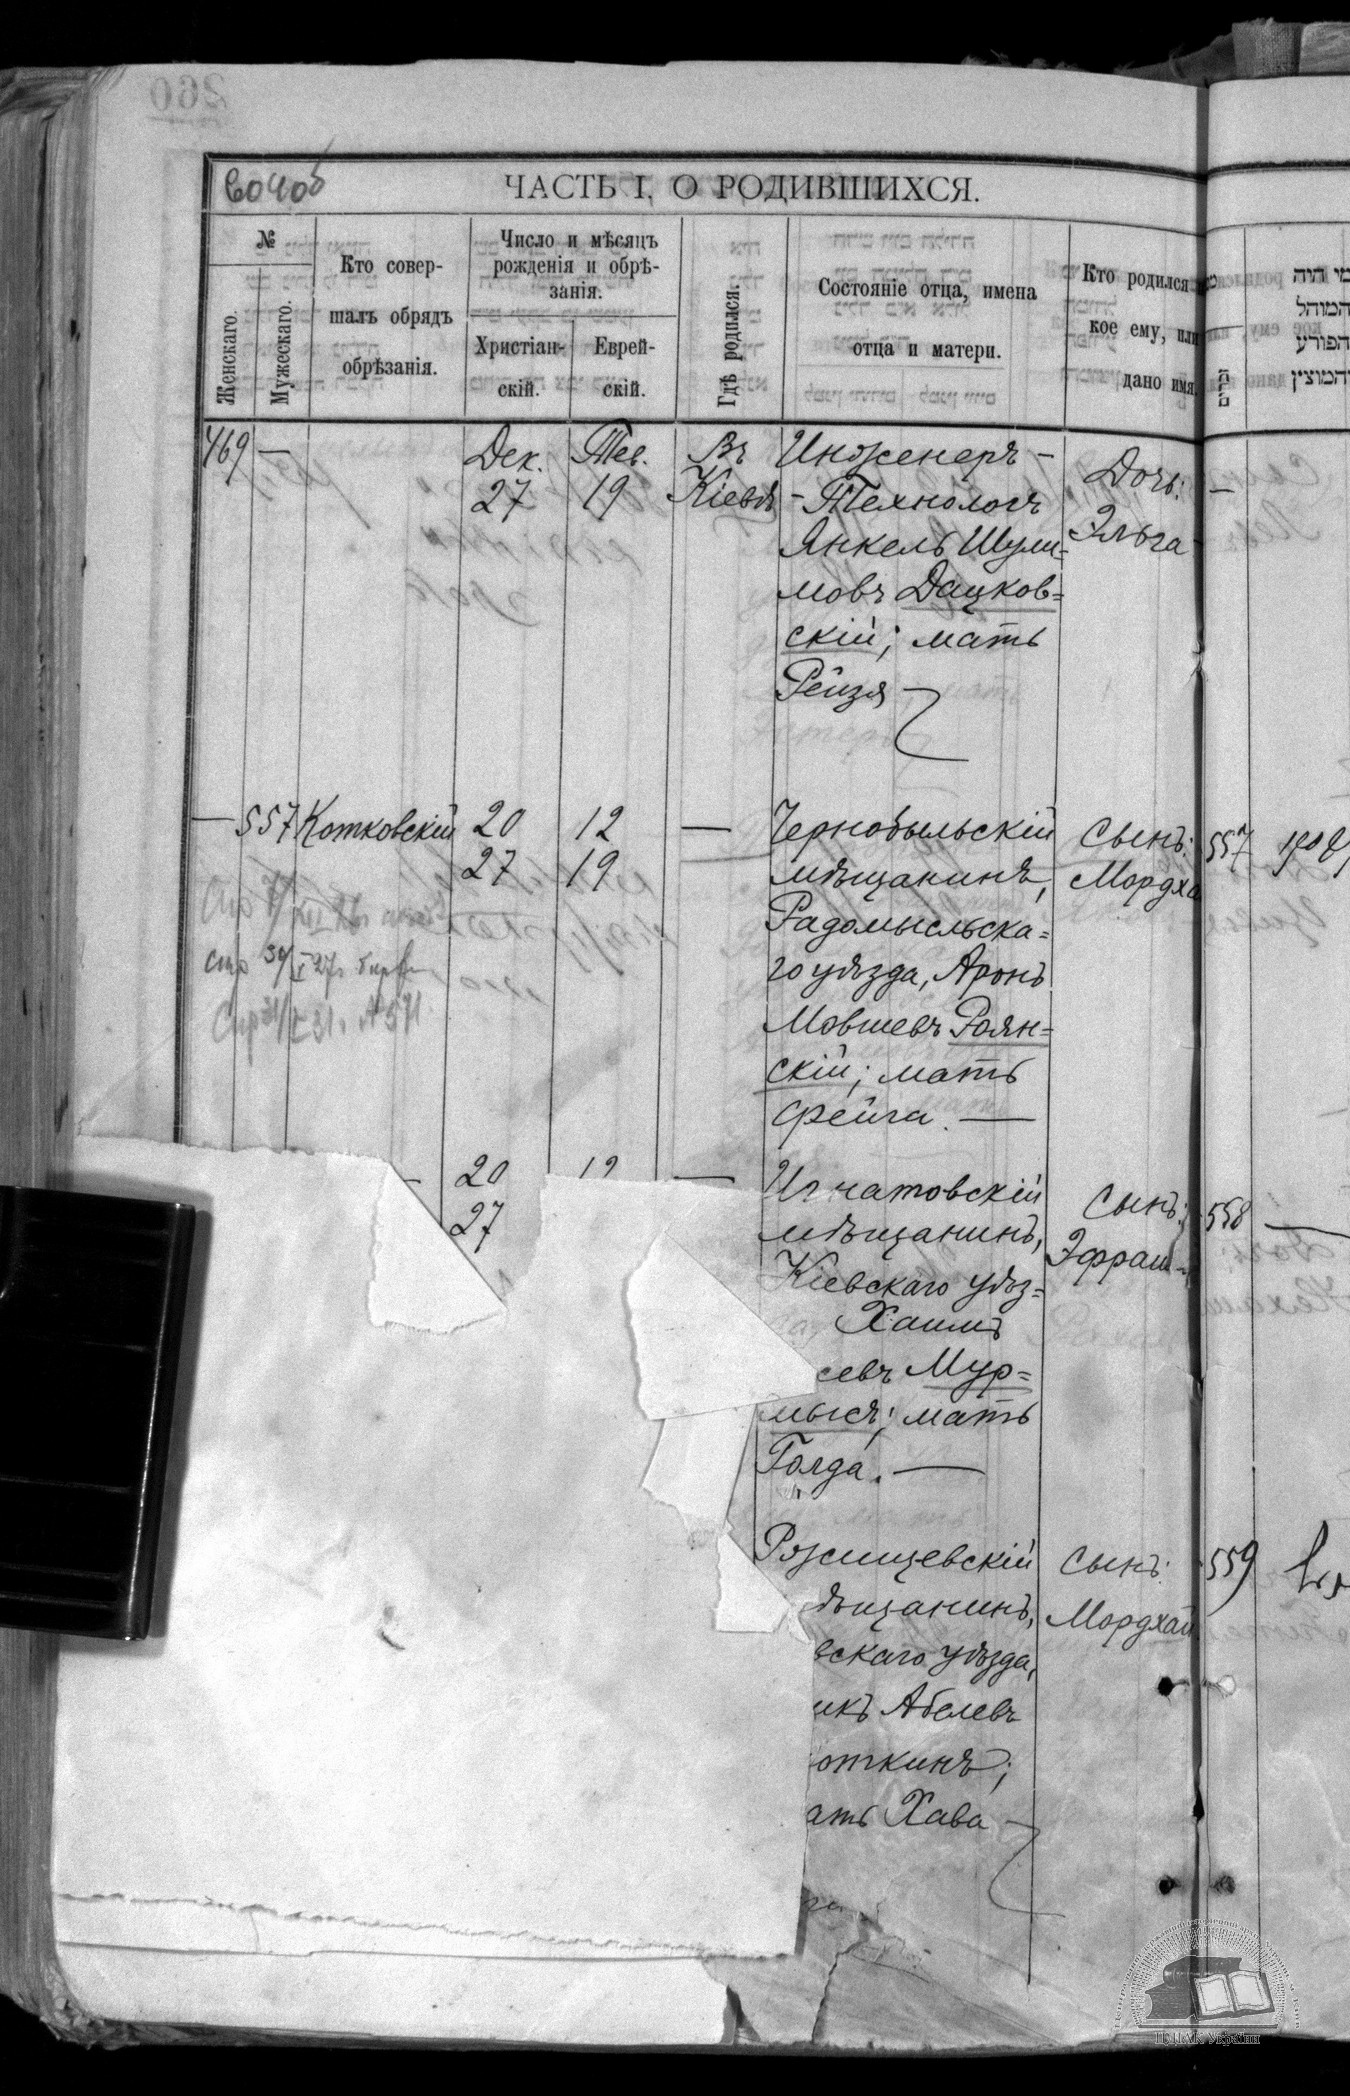 260
ЧАСТЬ I, О РОДИВШИХСЯ.
№
Женскаго.
Мужескаго.
Кто совер-
шалъ обрядъ
обрѣзанія.
Число и мѣсяцъ
рожденія и обрѣ-
занія.
Христіан-
скій.
Еврей-
скій.
Гдѣ родился.
Состояніе отца, имена
отца и матери.
Кто родился
кое ему, или
дано имя.
מי היה
המוהל
הפורע
והמוצץ
469 —
Дек.
27
Тев.
19
Въ
Кіевѣ
Инженеръ-
-Технологъ
Янкель Шули-
мовъ Дацков=
скій; мать
Рейзя
Дочь:
Эльга
—
— 557 Котковскій
20
27
12
19
—
Чернобыльскій
мѣщанинъ,
Радомысльска=
го уѣзда, Аронъ
Мовшевъ Роян-
скій; мать
Фейга. —
Сынъ:
Мордха
557
20
27
12
—
Игнатовскій
мѣщанинъ,
Кіевскаго уѣз=
Хаимъ
севъ Мур=
мысъ; мать
Голда. —
Сынъ:
Эфраим-
558 —
Ряжищевскій
ѣщанинъ,
вскаго уѣзда,
икъ Абелевъ
откинъ;
ать Хава
Сынъ:
Мордхай
559
ЦДІАК України